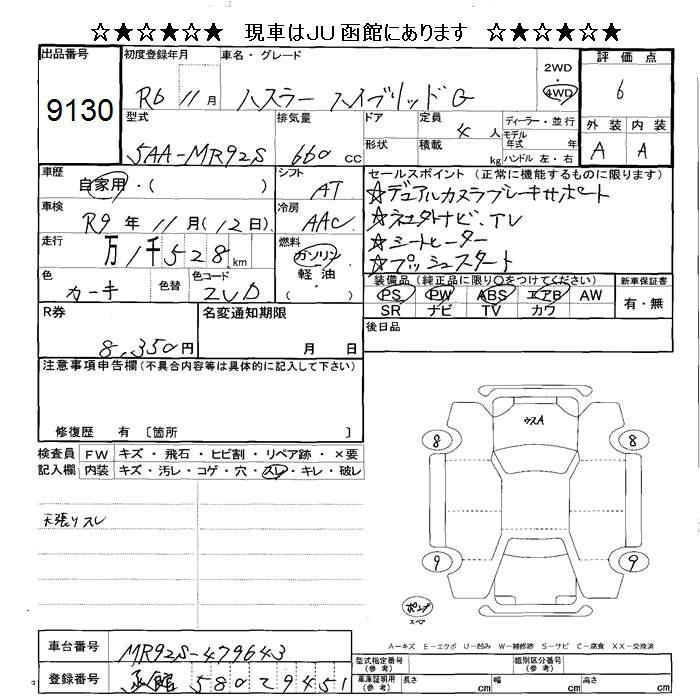 ☆★☆★☆★ 現車はJU函館にあります ☆★☆★☆★
出品番号 初度登録年月 車名・グレード 2WD・4WD 評価点
9130 R6 11月 ハスラー ハイブリッドG 6
型式 排気量 ドア 定員 4人 ディーラー・並行 外装 内装
モデル年式 年
5AA-MR92S 660cc 形状 積載 kg ハンドル 左・右 A A
車歴 シフト セールスポイント(正常に機能するものに限ります)
自家用・( ) AT ☆デュアルカメラブレーキサポート
車検 冷房 ☆ネクタトナビ、TV
R9年11月(12日) AAC ☆シートヒーター
走行 燃料 ☆プッシュスタート
万1千528km ガソリン
軽油
( )
色 色替 色コード 装備品(純正品に限り○をつけてください) 新車保証書
カーキ ZVD PS PW ABS エアB AW 有・無
SR ナビ TV カワ
R券 名変通知期限 後日品
8,350円 月 日
注意事項申告欄(不具合内容等は具体的に記入して下さい)
ウスA
修復歴 有 〔箇所 〕
8 8
検査員 FW キズ・飛石・ヒビ割・リペア跡・×要
記入欄 内装 キズ・汚レ・コゲ・穴・スレ・キレ・破レ
天張りスレ
9 9
ポンプ
スペア
A-キズ E-エクボ U-凹み W-補修跡 S-サビ C-腐食 XX-交換済
車台番号 MR92S-479643 型式指定番号(参考) 類別区分番号(参考)
登録番号 函館 580 2 9451 車庫証明用(参考) 長さ cm 幅 cm 高さ cm